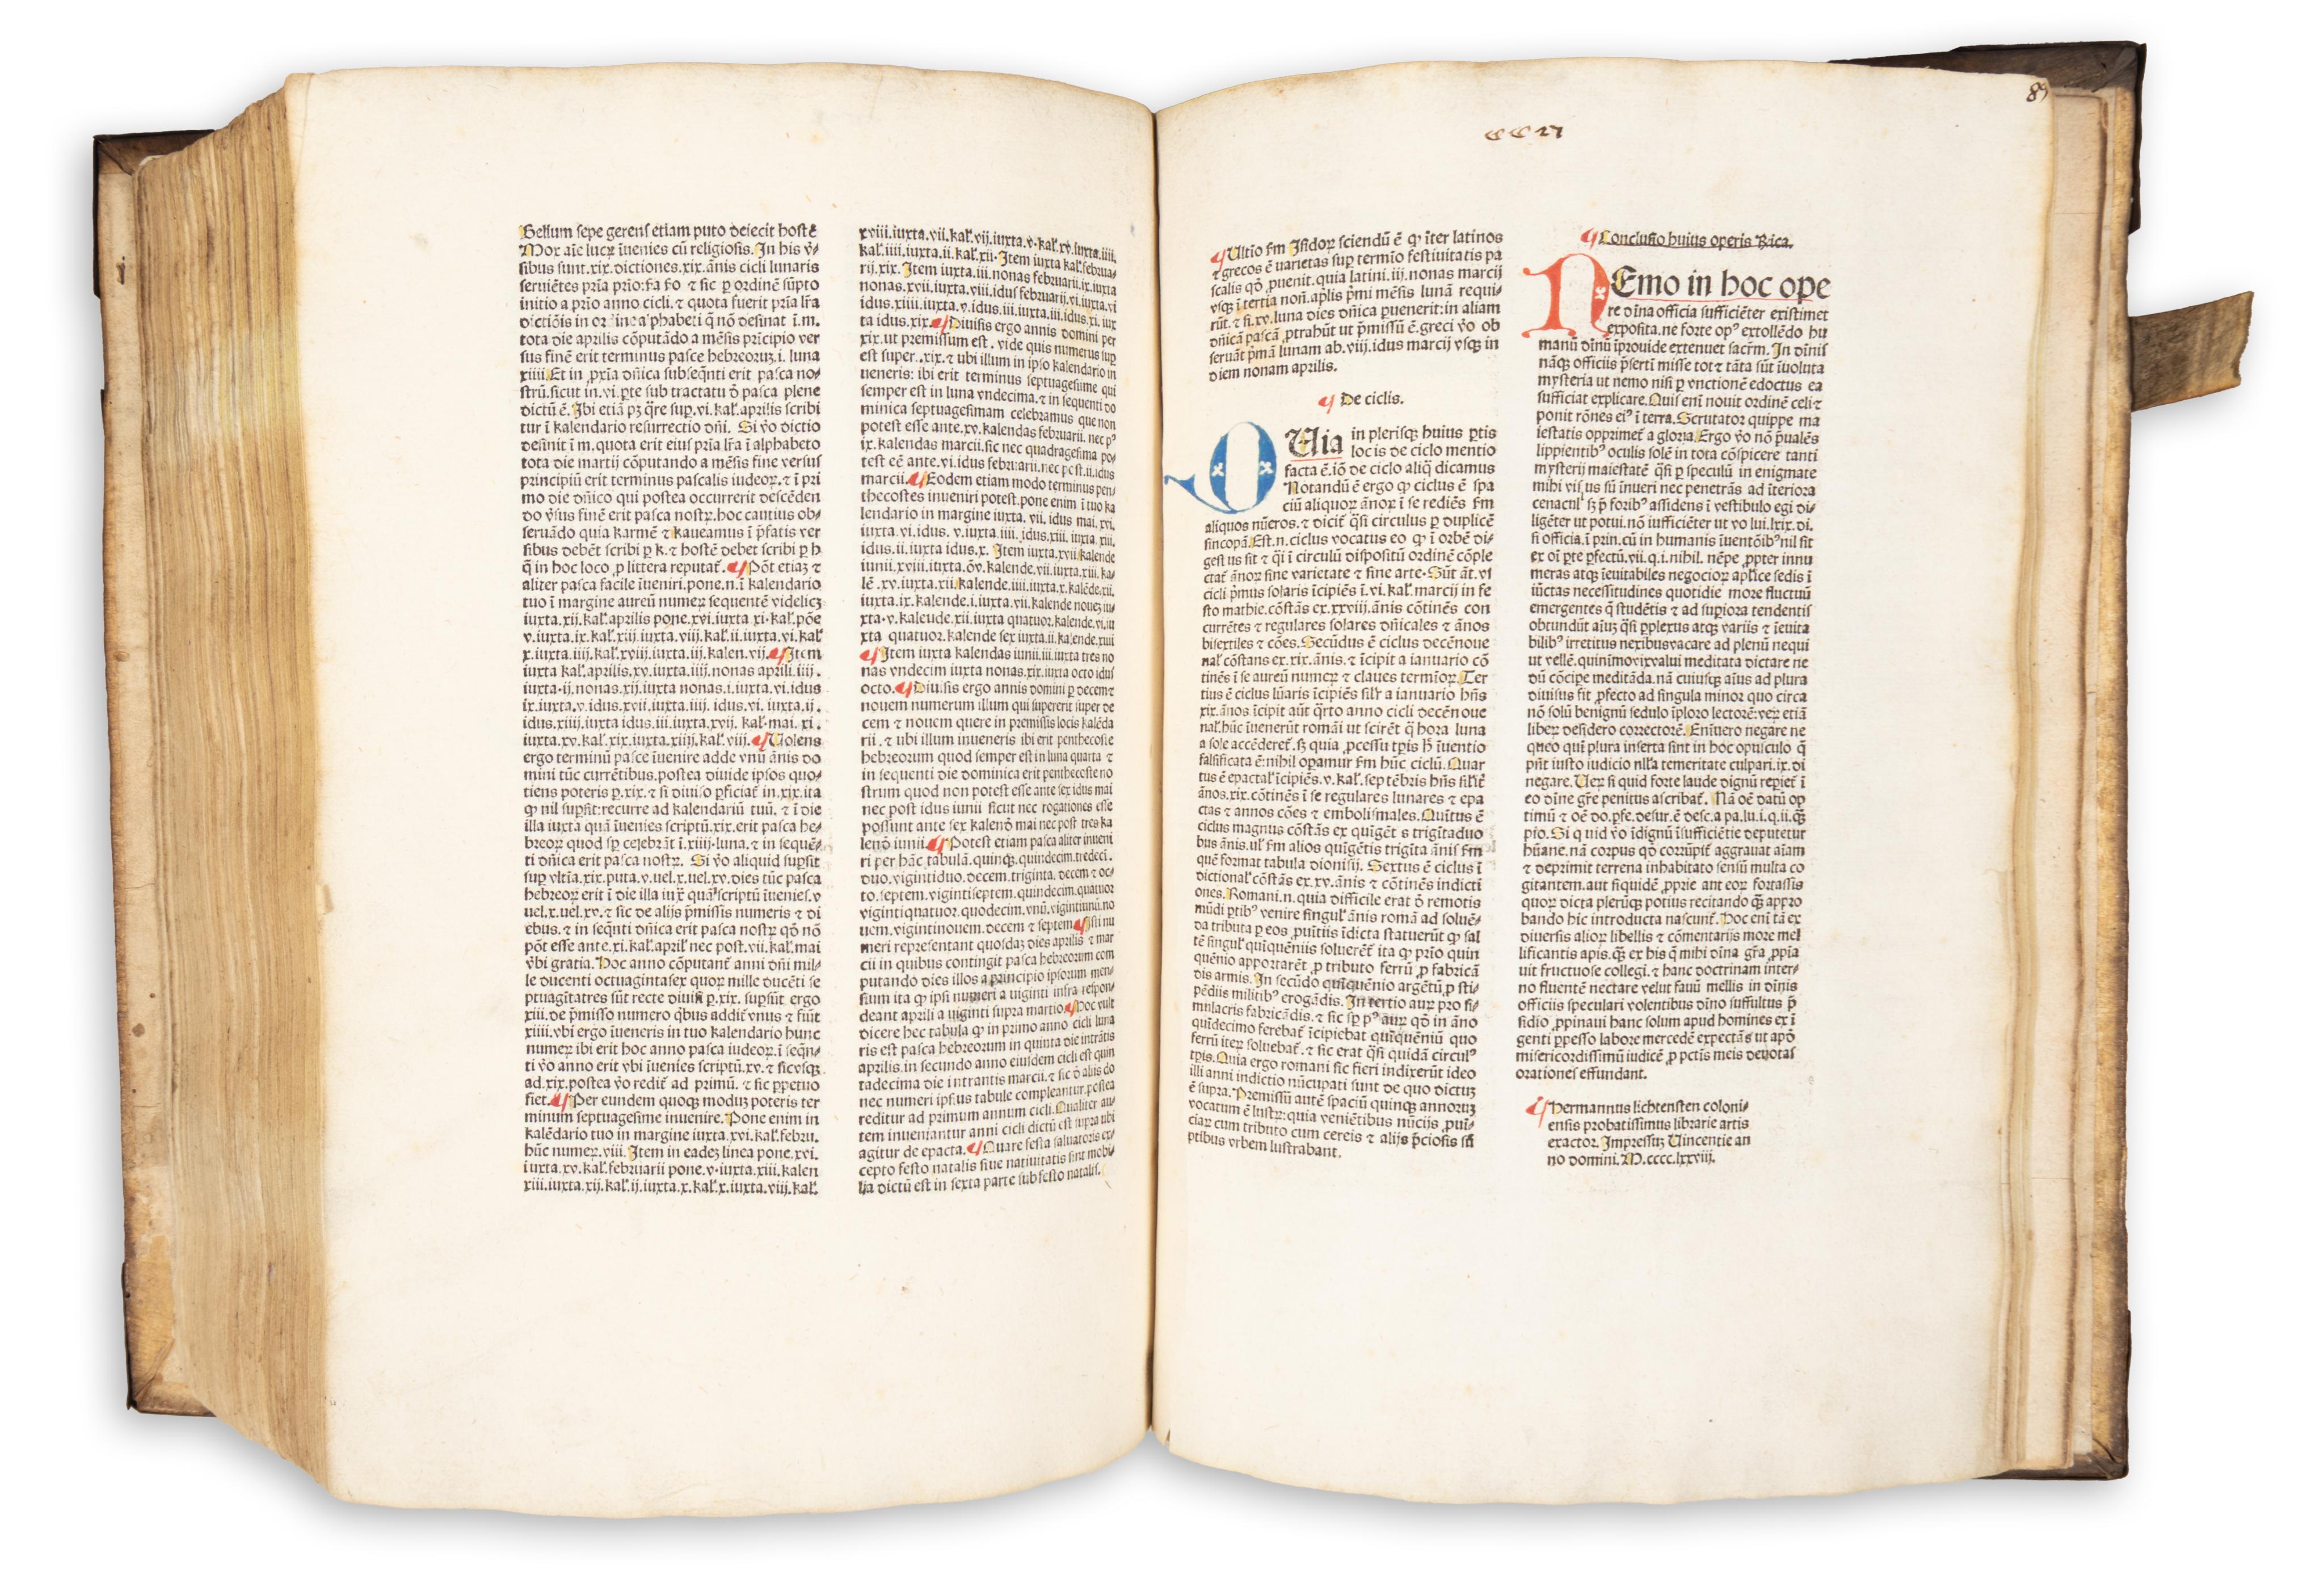 Bellum sepe gerens etiam puto deiecit hostē
Mox aīe lucꝝ īuenies cū religiosis. In his v̄‐
sibus sunt.xix.dictiones.xix.ānis cicli lunaris
seruiētes pria prio: scꝺa
initio a prio anno cicli. ⁊ quota fuerit pria lr̄a
dictiōis in ordine alphabeti q̄ nō desinat ī.m.
tota die aprilis cōputādo a mēsis prīcipio ver
sus finē erit terminus pasce hebreoꝝ.i. luna
xiiii. Et in ꝓxīa dñica subseq̄nti erit pasca no‐
strū.sicut in.vi.ꝑte sub tractatu ꝺ̄ pasca plene
dictū ē. Ibi etiā pꝫ q̄re suꝑ.vi.kaƚ.aprilis scribi
tur ī kalendario resurrectio dñi. Si v̄o dictio
desinit ī m.quota erit eius pria lr̄a ī alphabeto
tota die martij cōputando a mēsis fine versus
principiū erit terminus pascalis iudeoꝝ.⁊ ī pri
mo die dñico qui postea occurrerit descēden
do v̄sus finē erit pasca nostꝝ.hoc cautius ob‐
seruādo quia karmē ⁊ kaueamus ī p̄fatis ver
sibus debēt scribi ꝑ k.⁊ hostē debet scribi ꝑ h
q̄ in hoc loco ꝓ littera reputat᷑. ¶ Pōt etiaꝫ ⁊
aliter pasca facile īueniri.pone.n.ī kalendario
tuo ī margine aureū numeꝝ sequentē videlicꝫ
iuxta.xij.kaƚ.aprilis pone.xvi.iuxta xi.kaƚ.pōe
v.iuxta.ix.kaƚ.xiij iuxta.viij.kaƚ.ii.iuxta.vi.kaƚ
x.iuxta.iiij.kaƚ.xviij.iuxta.iij.kalen.vij. ¶ Item
iuxta kaƚ.aprilis.xv.iuxta.iiij.nonas aprili.iiij.
iuxta.ij.nonas.xij.iuxta nonas.i.iuxta.vi.idus
ix.iuxta.v.idus.xvij.iuxta.iiij. idus.vi. iuxta.ij.
idus.xiiij.iuxta idus.iij.iuxta.xvij. kaƚ.mai. xi.
iuxta.xv.kaƚ.xix.iuxta.xiiij.kaƚ.viij. ¶ Uolens
ergo terminū pasce īuenire adde vnū ānis do
mini tūc currētibus.postea diuide ipsos quo‐
tiens poteris ꝑ.xix.⁊ si diuisio ꝑficiat᷑ in.xix.ita
ꝙ nil supsit:recurre ad kalendariū tuū. ⁊ ī die
illa iuxta quā īuenies scriptū.xix.erit pasca he‐
breoꝝ quod sꝑ celebrāt ī.xiiij.luna.⁊ in sequē‐
ti dñica erit pasca nostꝝ. Si v̄o aliquid supsit
suꝑ vltīa.xix.puta.v.uel.x.uel.xv.dies tūc pasca
hebreoꝝ erit ī die illa
uel.x.uel.xv.⁊ sic de alijs p̄missis numeris ⁊ di
ebus.⁊ in seq̄nti dñica erit pasca nostꝝ qō nō
pōt esse ante.xi.kaƚ.apriƚ nec post.vii.kaƚ.mai
v̄bi gratia. Hoc anno cōputant᷑ anni dñi mil‐
le ducenti octuagītasex quoꝝ mille ducēti se
ptuagītatres sūt recte diuisi ꝑ.xix. supsūt ergo
xiii.de p̄misso numero q̄bus addit᷑ vnus ⁊ fiūt
xiiii.vbi ergo īueneris in tuo kalendario hunc
numeꝝ ibi erit hoc anno pasca iudeoꝝ.ī seq̄n‐
ti v̄o anno erit vbi īuenies scriptū.xv.⁊ sicvsqꝫ
ad.xix.postea v̄o redit᷑ ad primū. ⁊ sic ꝑpetuo
fiet. ¶ Per eundem quoqꝫ moduꝫ poteris ter
minum septuagesime inuenire. Pone enim in
kalēdario tuo in margine iuxta.xvi.kaƚ.febru.
hūc numeꝝ.viii. Item in eadeꝫ linea pone.xvi.
iuxta.xv.kaƚ.februarii pone.v.iuxta.xiii.kalen
xiii.iuxta.xij.kaƚ.ij.iuxta.x.kaƚ.x.iuxta.viij.kaƚ.
xviii.iuxta.vii.kaƚ.vij.iuxta.v.kaƚ.xv.iuxta.iiii.
kaƚ.iiii.iuxta.ii.kaƚ.xii. Item iuxta kaƚ.februa‐
rij.xix. Item iuxta.iii.nonas februarii.ix.iuxta
nonas.xvii.iuxta.viii.idus februarij.vi.iuxta.vi
idus.xiiii.iuxta.v.idus.iii.iuxta.iii.idus.xi. iux
ta idus.xix. ¶ Diuisis ergo annis domini per
xix.ut premissum est. vide quis numerus suꝑ
est super..xix.⁊ ubi illum in ipso kalendario in
ueneris: ibi erit terminus septuagesime qui
semper est in luna vndecima.⁊ in sequenti do
minica septuagesimam celebramus que non
potest esse ante.xv.kalendas februarii. nec pꝰ
ix.kalendas marcii.sic nec quadragesima po‐
test eē ante.vi.idus februarii.nec post.ii.idus
marcii. ¶ Eodem etiam modo terminus pen‐
thecostes inueniri potest.pone enim ī tuo ka
lendario in margine iuxta. vii. idus mai. xvi.
iuxta.vi.idus. v.iuxta.iiii. idus.xiii. iuxta.iii.
idus.ii.iuxta idus.x. Item iuxta.xvii kalende
iunii.xviii.iuxta.xv.kalende.vii.iuxta.xiii.ka‐
lē.xv.iuxta.xii.kalende.iiii.iuxta.x.kalēde.xii.
iuxta.ix.kalende.i.iuxta.vii.kalende noueꝫ iu‐
xta.v.kalende.xii.iuxta quatuor.kalende.vi.iu
xta quatuor.kalende sex iuxta.ii.kalende.xiiii
¶ Item iuxta kalendas iunii.iii.iuxta tres no
nas vndecim iuxta nonas.xix.iuxta octo idus
octo. ¶ Diuisis ergo annis domini ꝑ decem ⁊
nouem numerum illum qui supererit super de
cem ⁊ nouem quere in premissis locis kalēda
rii.⁊ ubi illum inueneris ibi erit penthecoste
hebreorum quod semper est in luna quarta ⁊
in sequenti die dominica erit penthecoste no
strum quod non potest esse ante sex idus mai
nec post idus iunii sicut nec rogationes esse
possunt ante sex kalend̄ mai nec post tres ka
lend̄ iunii. ¶ Potest etiam pasca aliter inueni
ri per hāc tabulā.quinqꝫ.quindecim.tredeci.
duo.vigintiduo.decem.triginta. decem ⁊ oc‐
to.septem.vigintiseptem.quindecim.quatuor
vigintiquatuor.quodecim.vnū.vigintiunū.no
uem.vigintinouem.decem ⁊ septem ¶ Isti nu
meri representant quosdaꝫ dies aprilis ⁊ mar
cii in quibus contingit pasca hebreorum com
putando dies illos a principio ipsorum men‐
sium ita ꝙ ipsi numeri a uiginti infra respon‐
deant aprili a uiginti supra martio. ¶ Hoc vult
dicere hec tabula ꝙ in primo anno cicli luna
ris est pasca hebreorum in quinta die intrātis
aprilis.in secundo anno eiusdem cicli est quin
tadecima die intrantis marcii.⁊ sic ꝺ̄ aliis do
nec numeri ipsius tabule compleantur.postea
reditur ad primum annum cicli. Qualiter au‐
tem inueniantur anni cicli dictū est supra ubi
agitur de epacta. ¶ Quare festa saluatoris ex‐
cepto festo natalis siue natiuitatis sint mobi‐
lia dictū est in sexta parte sub festo natalis.
89
¶ Ultīo fm Isidoꝝ sciendū ē ꝙ īter latinos
⁊ grecos ē varietas suꝑ termīo festiuitatis pa
scalis qō ꝓuenit.quia latini.iij.nonas marcij
vsqꝫ ī tertia non̄.apƚis p̄mi mēsis lunā requi‐
rūt.⁊ si.xv.luna dies dñica ꝑuenerit:in aliam
dñicā pascā ꝓtrahūt ut p̄missū ē.greci v̄o ob
seruāt p̄mā lunam ab.viij.idus marcij vsqꝫ in
diem nonam aprilis.
¶ De ciclis.
QUia in plerisqꝫ huius ꝑtis
locis de ciclo mentio
facta ē.iō de ciclo aliq̄ dicamus
Notandū ē ergo ꝙ ciclus ē spa
ciū aliquoꝝ ānoꝝ ī se rediēs fm
aliquos nūeros.⁊ dicit᷑ q̄si circulus ꝑ duplicē
sincopā. Est.n.ciclus vocatus eo ꝙ ī orbē di‐
gestus sit ⁊ q̄i ī circulū dispositū ordinē cōple
ctat᷑ ānoꝝ sine varietate ⁊ sine arte. Sūt āt.vi
cicli p̄mus solaris īcipiēs ī.vi.kaƚ.marcij in fe
sto mathie.cōstās ex.xxviij.ānis cōtinēs con
currētes ⁊ regulares solares dñicales ⁊ ānos
bisextiles ⁊ cōes. Secūdus ē ciclus decēnoue
naƚ cōstans ex.xix.ānis.⁊ īcipit a ianuario cō
tinēs ī se aureū numeꝝ ⁊ claues termīoꝝ. Ter
tius ē ciclus lūaris īcipiēs siƚr a ianuario hñs
xix.ānos īcipit aūt q̄rto anno cicli decēnoue
naƚ.hūc īuenerūt romāi ut scirēt q̄ hora luna
a sole accēderet᷑.sꝫ quia ꝓcessu tꝑis h̄ īuentio
falsificata ē:nihil oꝑamur fm hūc ciclū. Quar
tus ē epactaƚ īcipiēs.v.kaƚ.septēbris hñs siƚr
ānos.xix.cōtinēs ī se regulares lunares ⁊ epa
ctas ⁊ annos cōes ⁊ embolismales. Quītus ē
ciclus magnus cōstās ex quīgēt s trigītaduo
bus ānis.uƚ fm alios quīgētis trigīta ānis fm
quē format tabula dionisij. Sextus ē ciclus ī
dictionaƚ cōstās ex.xv.ānis ⁊ cōtinēs indicti
ones. Romani.n.quia difficile erat ꝺ̄ remotis
mūdi ꝑtibꝰ venire singuƚ ānis romā ad soluē‐
da tributa ꝑ eos ꝓuītiis īdicta statuerūt ꝙ sal
tē singuƚ quīquēniis soluerēt᷑ ita ꝙ prīo quin
quēnio apportarēt ꝓ tributo ferrū ꝓ fabricā
dis armis. In secūdo quīquēnio argētū ꝓ sti‐
pēdiis militibꝰ erogādis. In tertio auꝝ pro si‐
mulacris fabricādis.⁊ sic sꝑ pꝰ auꝝ qō in āno
quīdecimo ferebat᷑ īcipiebat quīquēniū quo
ferrū iteꝝ soluebat᷑.⁊ sic erat q̄si quidā circulꝰ
tꝑis. Quia ergo romani sic fieri indixerūt ideo
illi anni indictio nūcupati sunt de quo dictuꝫ
ē supra. Premissū autē spaciū quinqꝫ annoruꝫ
vocatum ē lustꝝ:quia veniētibus nūcijs ꝓuī‐
ciaꝝ cum tributo cum cereis ⁊ alijs p̄ciosis su
ptibus vrbem lustrabant.
¶ Conclusio huius operis Rica.
NEmo in hoc ope
re dīna officia sufficiēter existimet
exposita.ne forte opꝰ extollēdo hu
manū dīnū īprouide extenuet sacr̄m. In dīnis
nāqꝫ officiis p̄serti misse tot ⁊ tāta sūt īuoluta
mysteria ut nemo nisi ꝑ vnctionē edoctus ea
sufficiat explicare. Quis enī nouit ordinē celi ⁊
ponit rōnes eiꝰ ī terra. Scrutator quippe ma
iestatis opprimet᷑ a gloria. Ergo v̄o nō p̄ualēs
lippientibꝰ oculis solē in rota cōspicere tanti
mysterij maiestatē q̄si ꝑ speculū in enigmate
mihi visus sū īnueri nec penetrās ad īteriora
cenacuƚ sꝫ p̄ foribꝰ assidens ī vestibulo egi di‐
ligēter ut potui.nō īsufficiēter ut vo lui.lxix.di.
si officia.ī prin.cū in humanis īuentōibꝰ nil sit
ex oī ꝑte ꝑfectū.vii.q.i.nihil. nēpe ꝓpter innu
meras atqꝫ īeuitabiles negocioꝝ apƚice sedis ī
iūctas necessitudines quotidie more fluctuū
emergentes q̄ studētis ⁊ ad suꝑiora tendentis
obtundūt aīuꝫ q̄si ꝑplexus atqꝫ variis ⁊ īeuita
bilibꝰ irretitus nexibusvacare ad plenū nequi
ut vellē.quinīmovixvalui meditata dictare ne
dū cōcipe meditāda.nā cuiusqꝫ aīus ad plura
diuisus fit ꝓfecto ad singula minor quo circa
nō solū benignū sedulo īploro lectorē:veꝝ etiā
libeꝝ desidero correctorē. Enīuero negare ne
queo quī plura inserta sint in hoc opusculo q̄
pn̄t iusto iudicio nƚla temeritate culpari.ix.di
negare. Ueꝝ si quid forte laude dignū reꝑiet᷑ ī
eo dīne gr̄e penitus ascribat᷑. Nā oē datū op
timū ⁊ oē do.ꝑfe.desur.ē desc.a pa.lu.i.q.ii.q̄ꝫ
pio. Si quid v̄o īdignū īsufficiētie deputetur
hūane.nā corpus qō corrūpit᷑ aggrauat aīam
⁊ deprimit terrena inhabitato sensū multa co
gitantem.aut siquidē ꝓprie aut eoꝝ fortassis
quoꝝ dicta pleruqꝫ potius recitando q̄ꝫ appro
bando hic introducta nascunt᷑. Hoc enī tā ex
diuersis alioꝝ libellis ⁊ cōmentarijs more mel
lificantis apis.q̄ꝫ ex his q̄ mihi dīna gr̄a ꝓpīa
uit fructuose collegi.⁊ hanc doctrinam inter‐
no fluentē nectare velut fauū mellis in dīnis
officiis speculari volentibus dīno suffultus p̄
sidio ꝓpinaui hanc solum apud homines ex ī
genti ꝑpesso labore mercedē expectās ut apō
misericordissimū iudicē ꝓ pctīs meis deuotas
orationes effundant.
¶ Hermannus lichtensten coloni‐
ensis probatissimus librarie artis
exactor. Impressuꝫ Uincentie an
no domini. M.cccc.lxxviij.